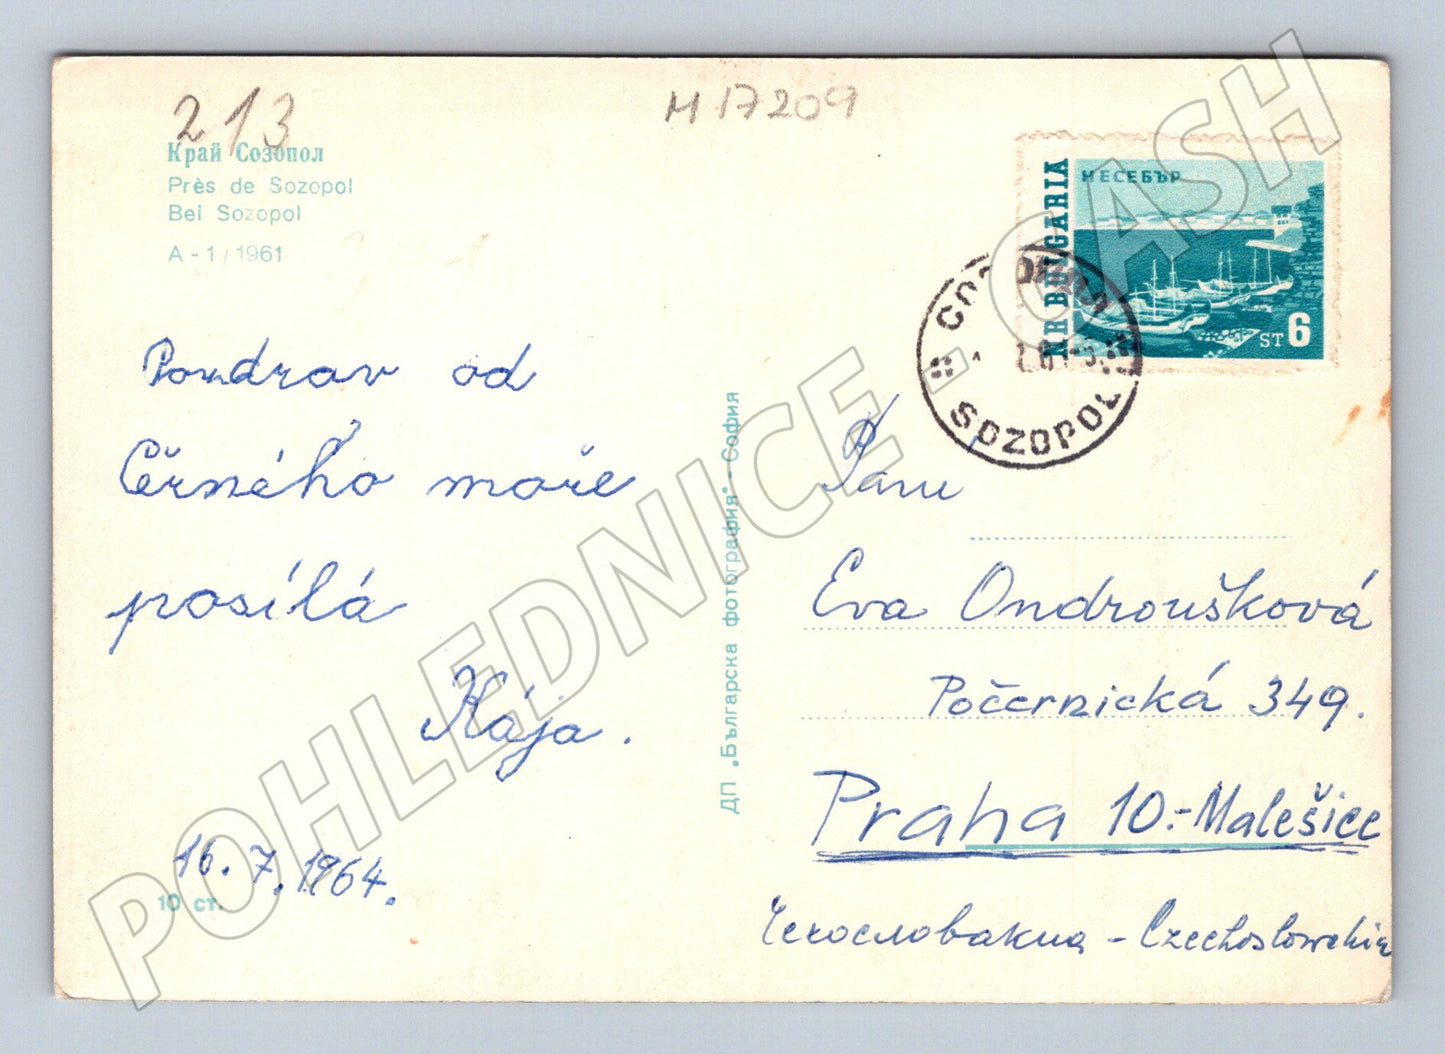 213
M 17209
Край Созопол
Près de Sozopol
Bei Sozopol
A - 1 / 1961
NR BULGARIA
НЕСЕБЪР
ST 6
СОЗОПОЛ
SOZOPOL
Pozdrav od
Černého moře
posílá
Kája.
16. 7. 1964.
10 ст.
ДП „Българска фотография" - София
Paní
Eva Ondroušková
Počernická 349.
Praha 10.-Malešice
Чехословакиа - Czechoslowakia
POHLEDNICE - CASH